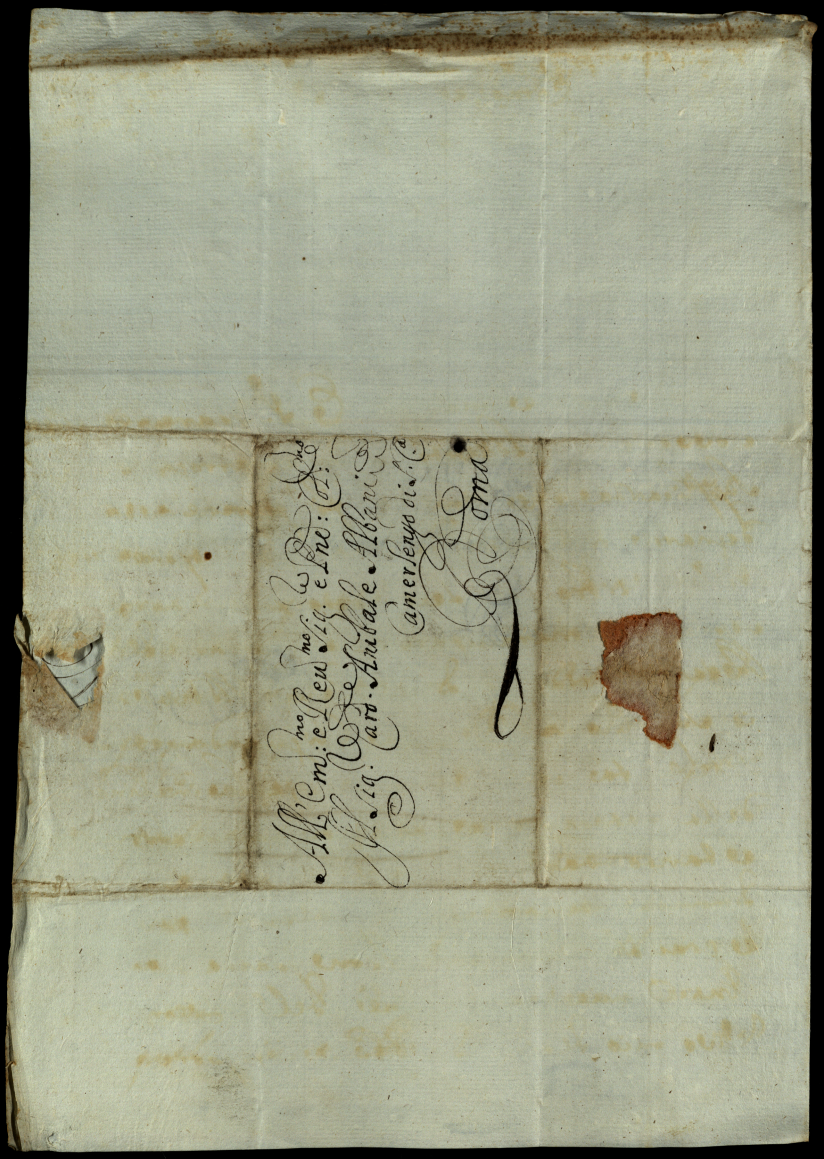 All' Em:mo e Reu.mo Sig. e Pne: Col:mo
Il Sig. Card. Anibale Albani
Camerlengo di S. Ca
Roma